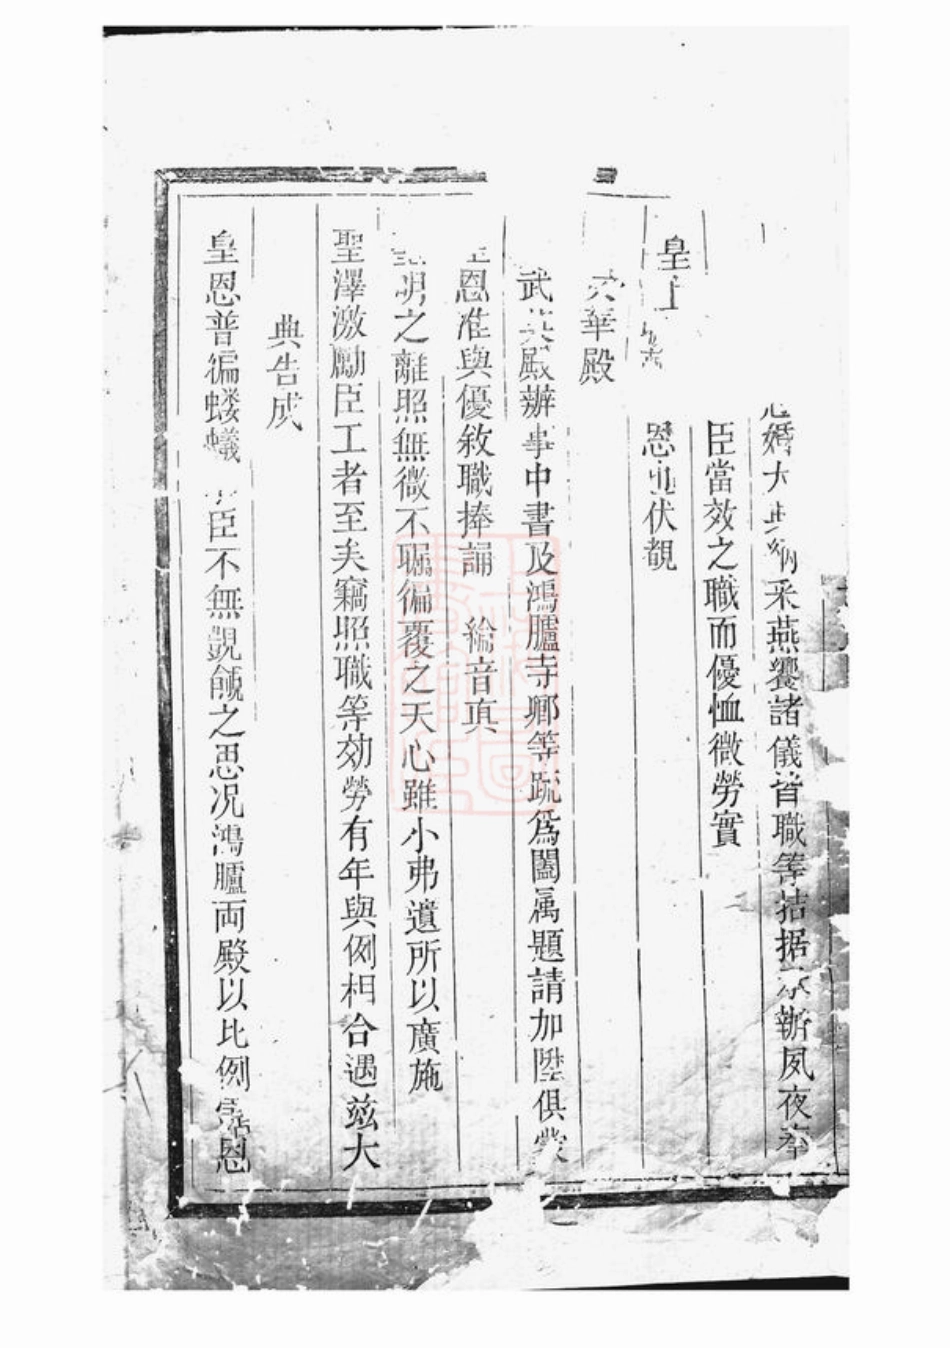 婚大 納采燕饗諸儀皆職等拮据 辦夙夜奉
臣當效之職而優恤微勞實
皇上
恩也伏覩
文華殿
武英殿辦事中書及鴻臚寺卿等疏爲闔属題請加陞俱蒙
恩准與優敘職捧誦 綸音真
明之離照無微不矚徧覆之天心雖小弗遺所以廣施
聖澤激勵臣工者至矣竊照職等効勞有年與例相合遇兹大
典告成
皇恩普徧蝼蟻 臣不無覬覦之思况鴻臚両殿以比例 恩